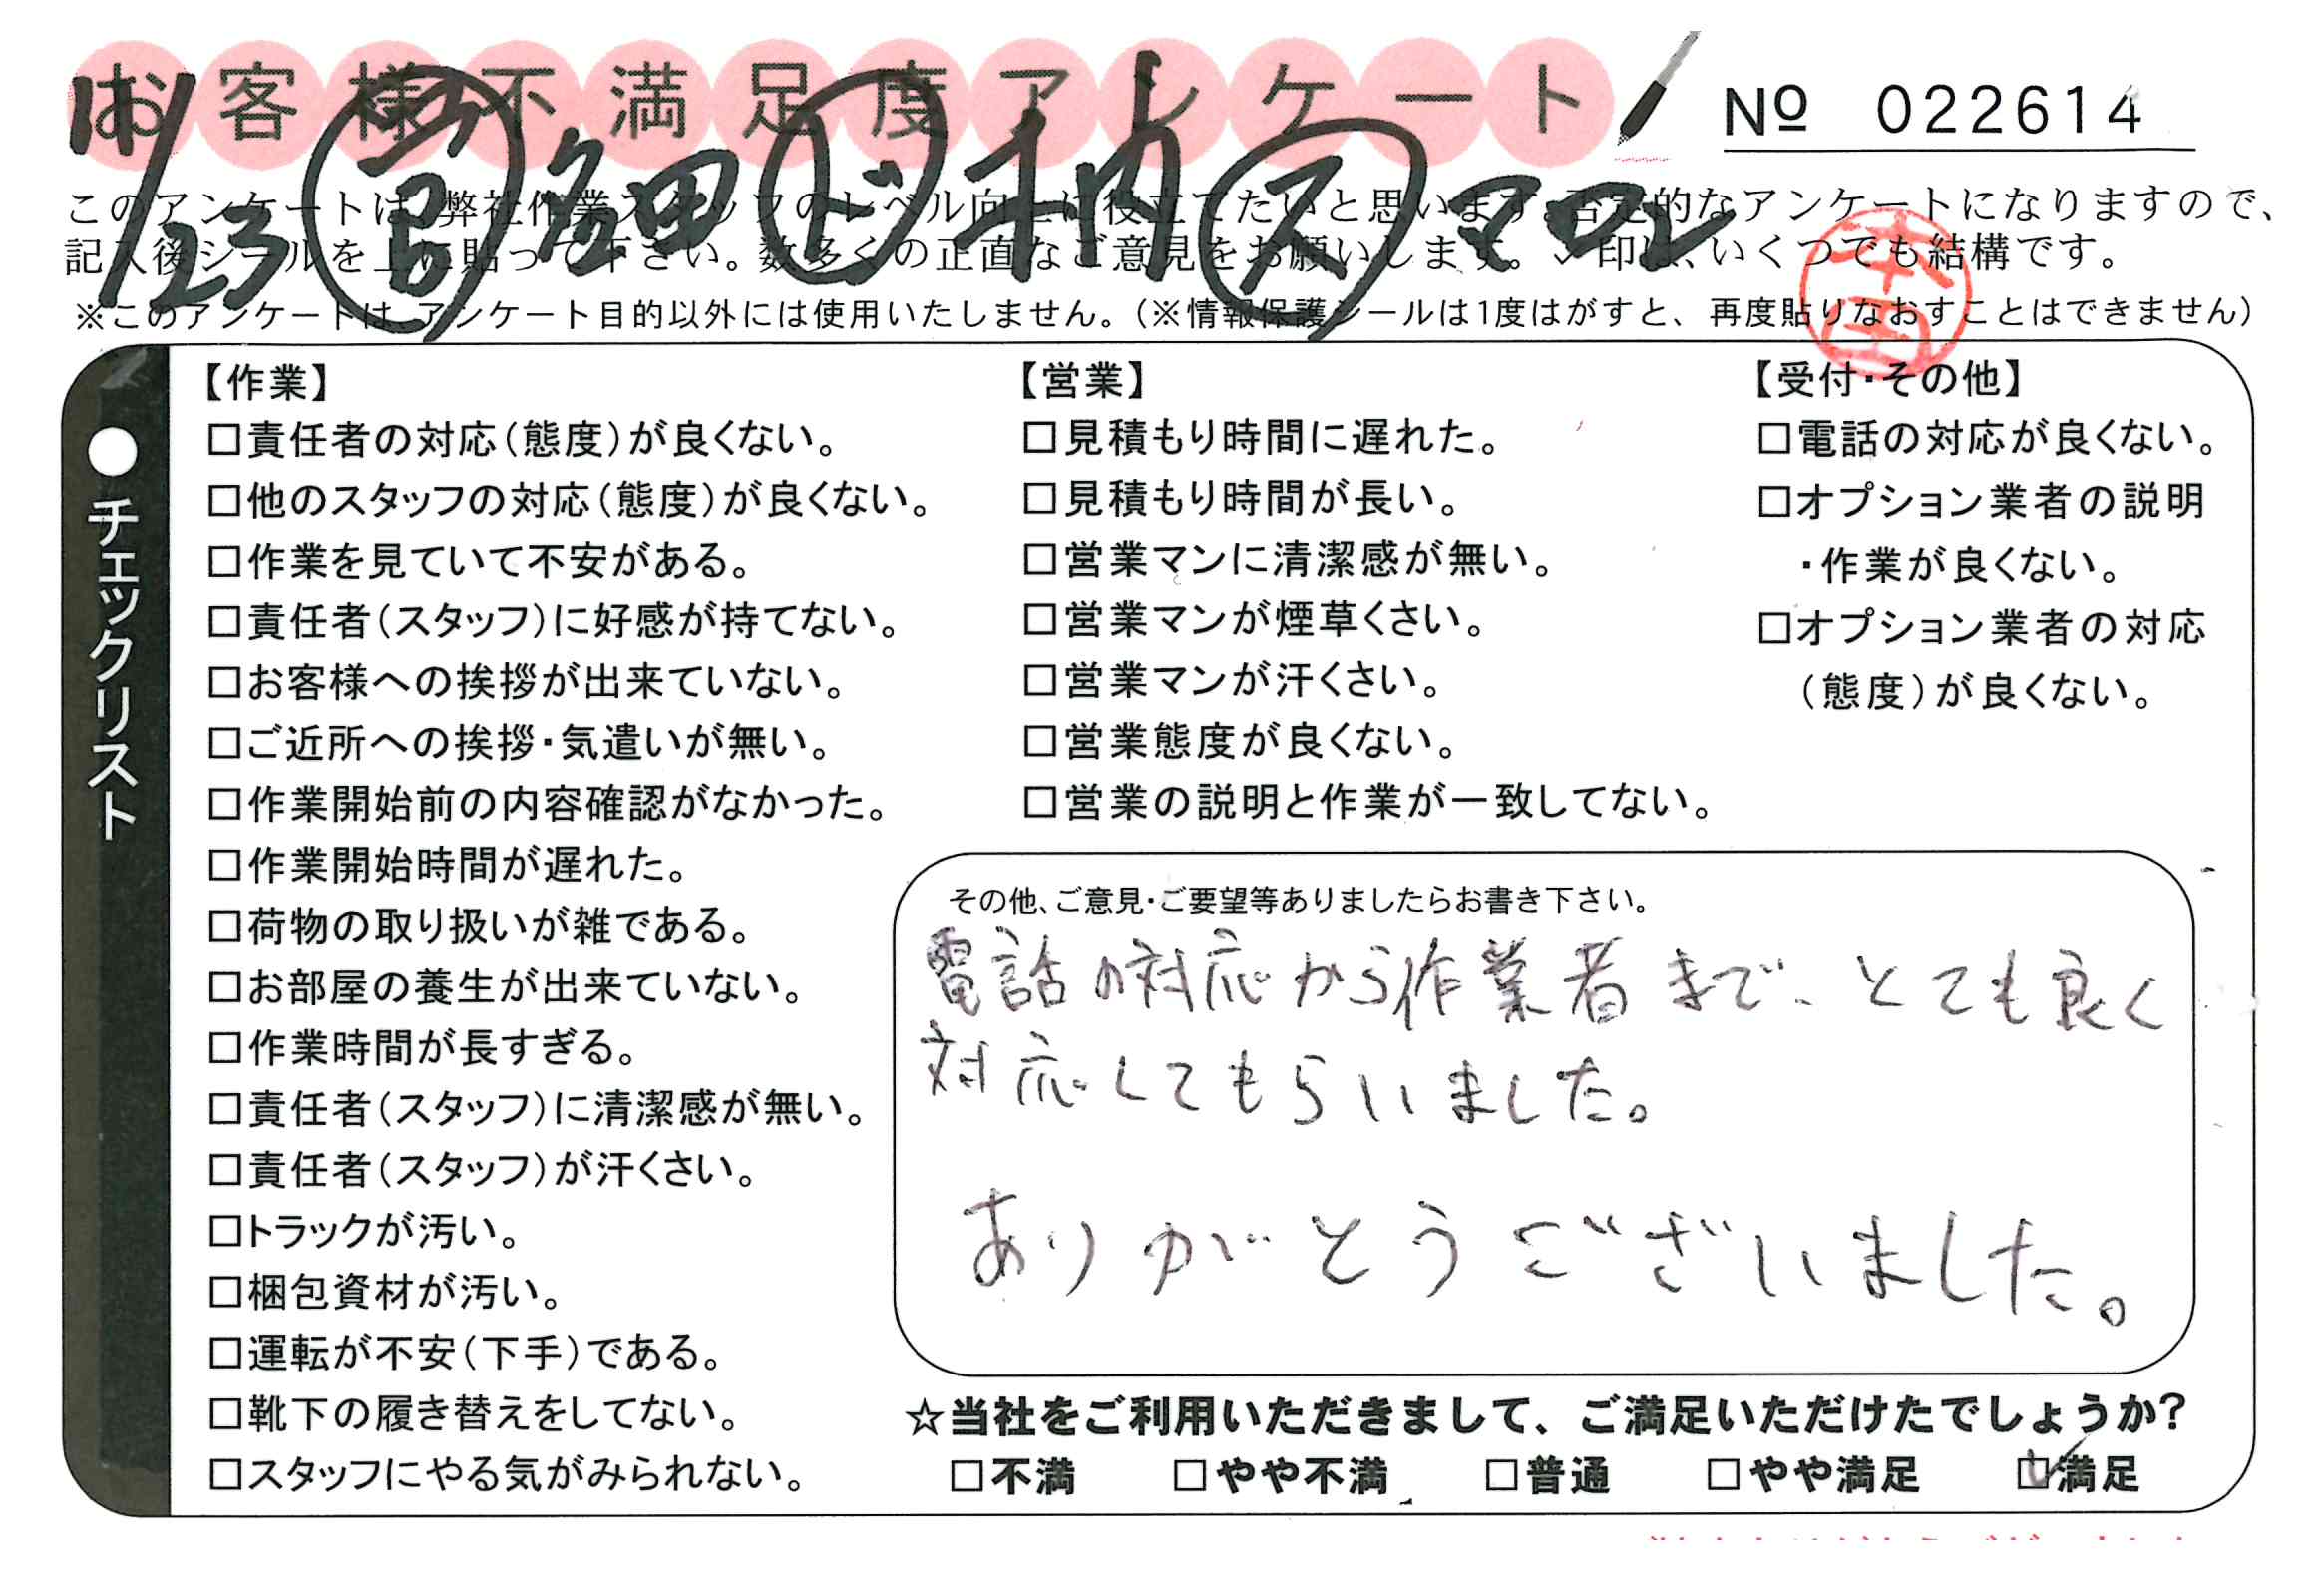 お客様不満足度アンケート
№ 022614
11/23
このアンケートは、弊社作業スタッフのレベル向上に役立てたいと思います。否定的なアンケートになりますので、
記入後シールを上に貼って下さい。数多くの正直なご意見をお願いします。✓印は、いくつでも結構です。
※このアンケートは、アンケート目的以外には使用いたしません。（※情報保護シールは1度はがすと、再度貼りなおすことはできません）
本田
●チェックリスト
【作業】
□責任者の対応（態度）が良くない。
□他のスタッフの対応（態度）が良くない。
□作業を見ていて不安がある。
□責任者（スタッフ）に好感が持てない。
□お客様への挨拶が出来ていない。
□ご近所への挨拶・気遣いが無い。
□作業開始前の内容確認がなかった。
□作業開始時間が遅れた。
□荷物の取り扱いが雑である。
□お部屋の養生が出来ていない。
□作業時間が長すぎる。
□責任者（スタッフ）に清潔感が無い。
□責任者（スタッフ）が汗くさい。
□トラックが汚い。
□梱包資材が汚い。
□運転が不安（下手）である。
□靴下の履き替えをしてない。
□スタッフにやる気がみられない。
【営業】
□見積もり時間に遅れた。
□見積もり時間が長い。
□営業マンに清潔感が無い。
□営業マンが煙草くさい。
□営業マンが汗くさい。
□営業態度が良くない。
□営業の説明と作業が一致してない。
【受付・その他】
□電話の対応が良くない。
□オプション業者の説明
・作業が良くない。
□オプション業者の対応
（態度）が良くない。
その他、ご意見・ご要望等ありましたらお書き下さい。
電話の対応から作業者まで、とても良く
対応してもらいました。
ありがとうございました。
☆当社をご利用いただきまして、ご満足いただけたでしょうか？
□不満 □やや不満 □普通 □やや満足 ☑満足